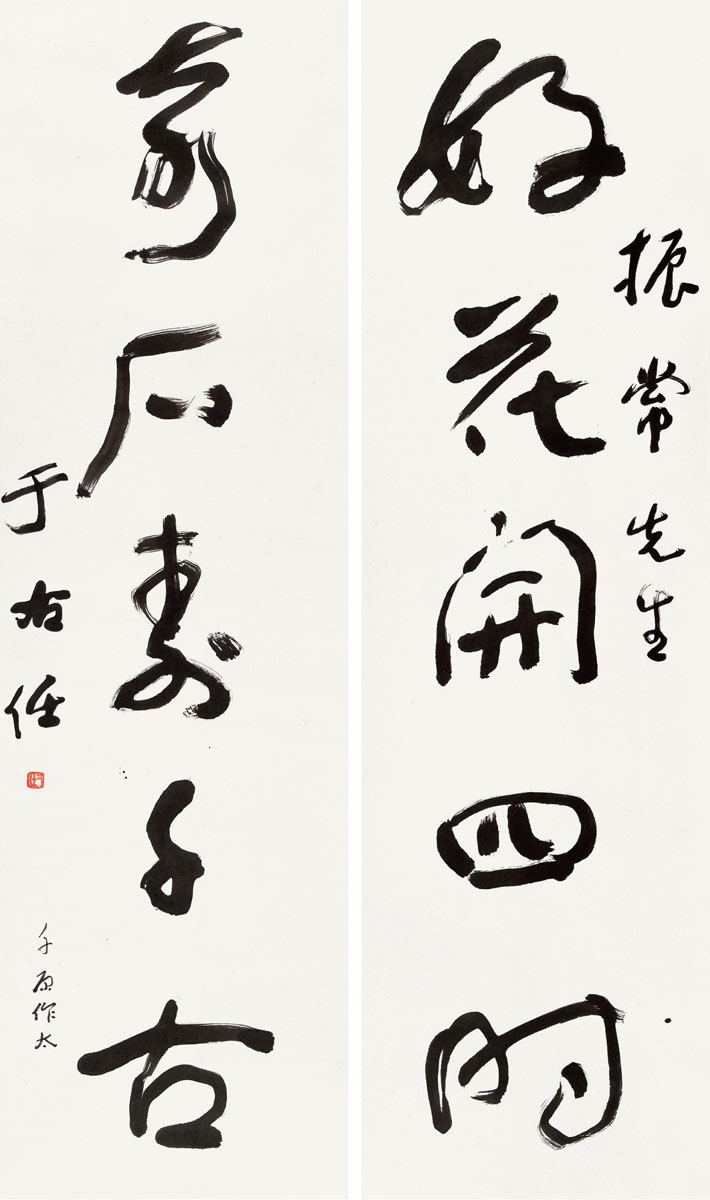 振常先生
好花開四時
奇石壽千古
于右任
千原作太